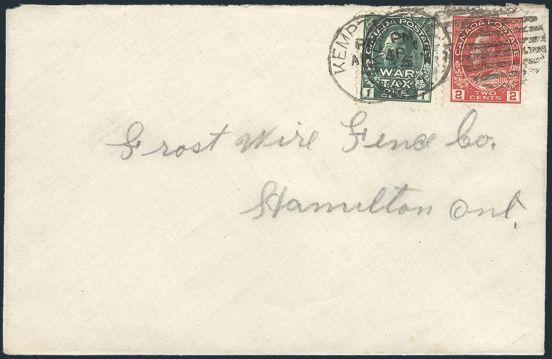 KEMP
PM
AP
CANADA POSTAGE
WAR
TAX
1 CENT 1
CANADA POSTAGE
2 TWO CENTS 2
Frost Wire Fence Co.
Hamilton Ont.